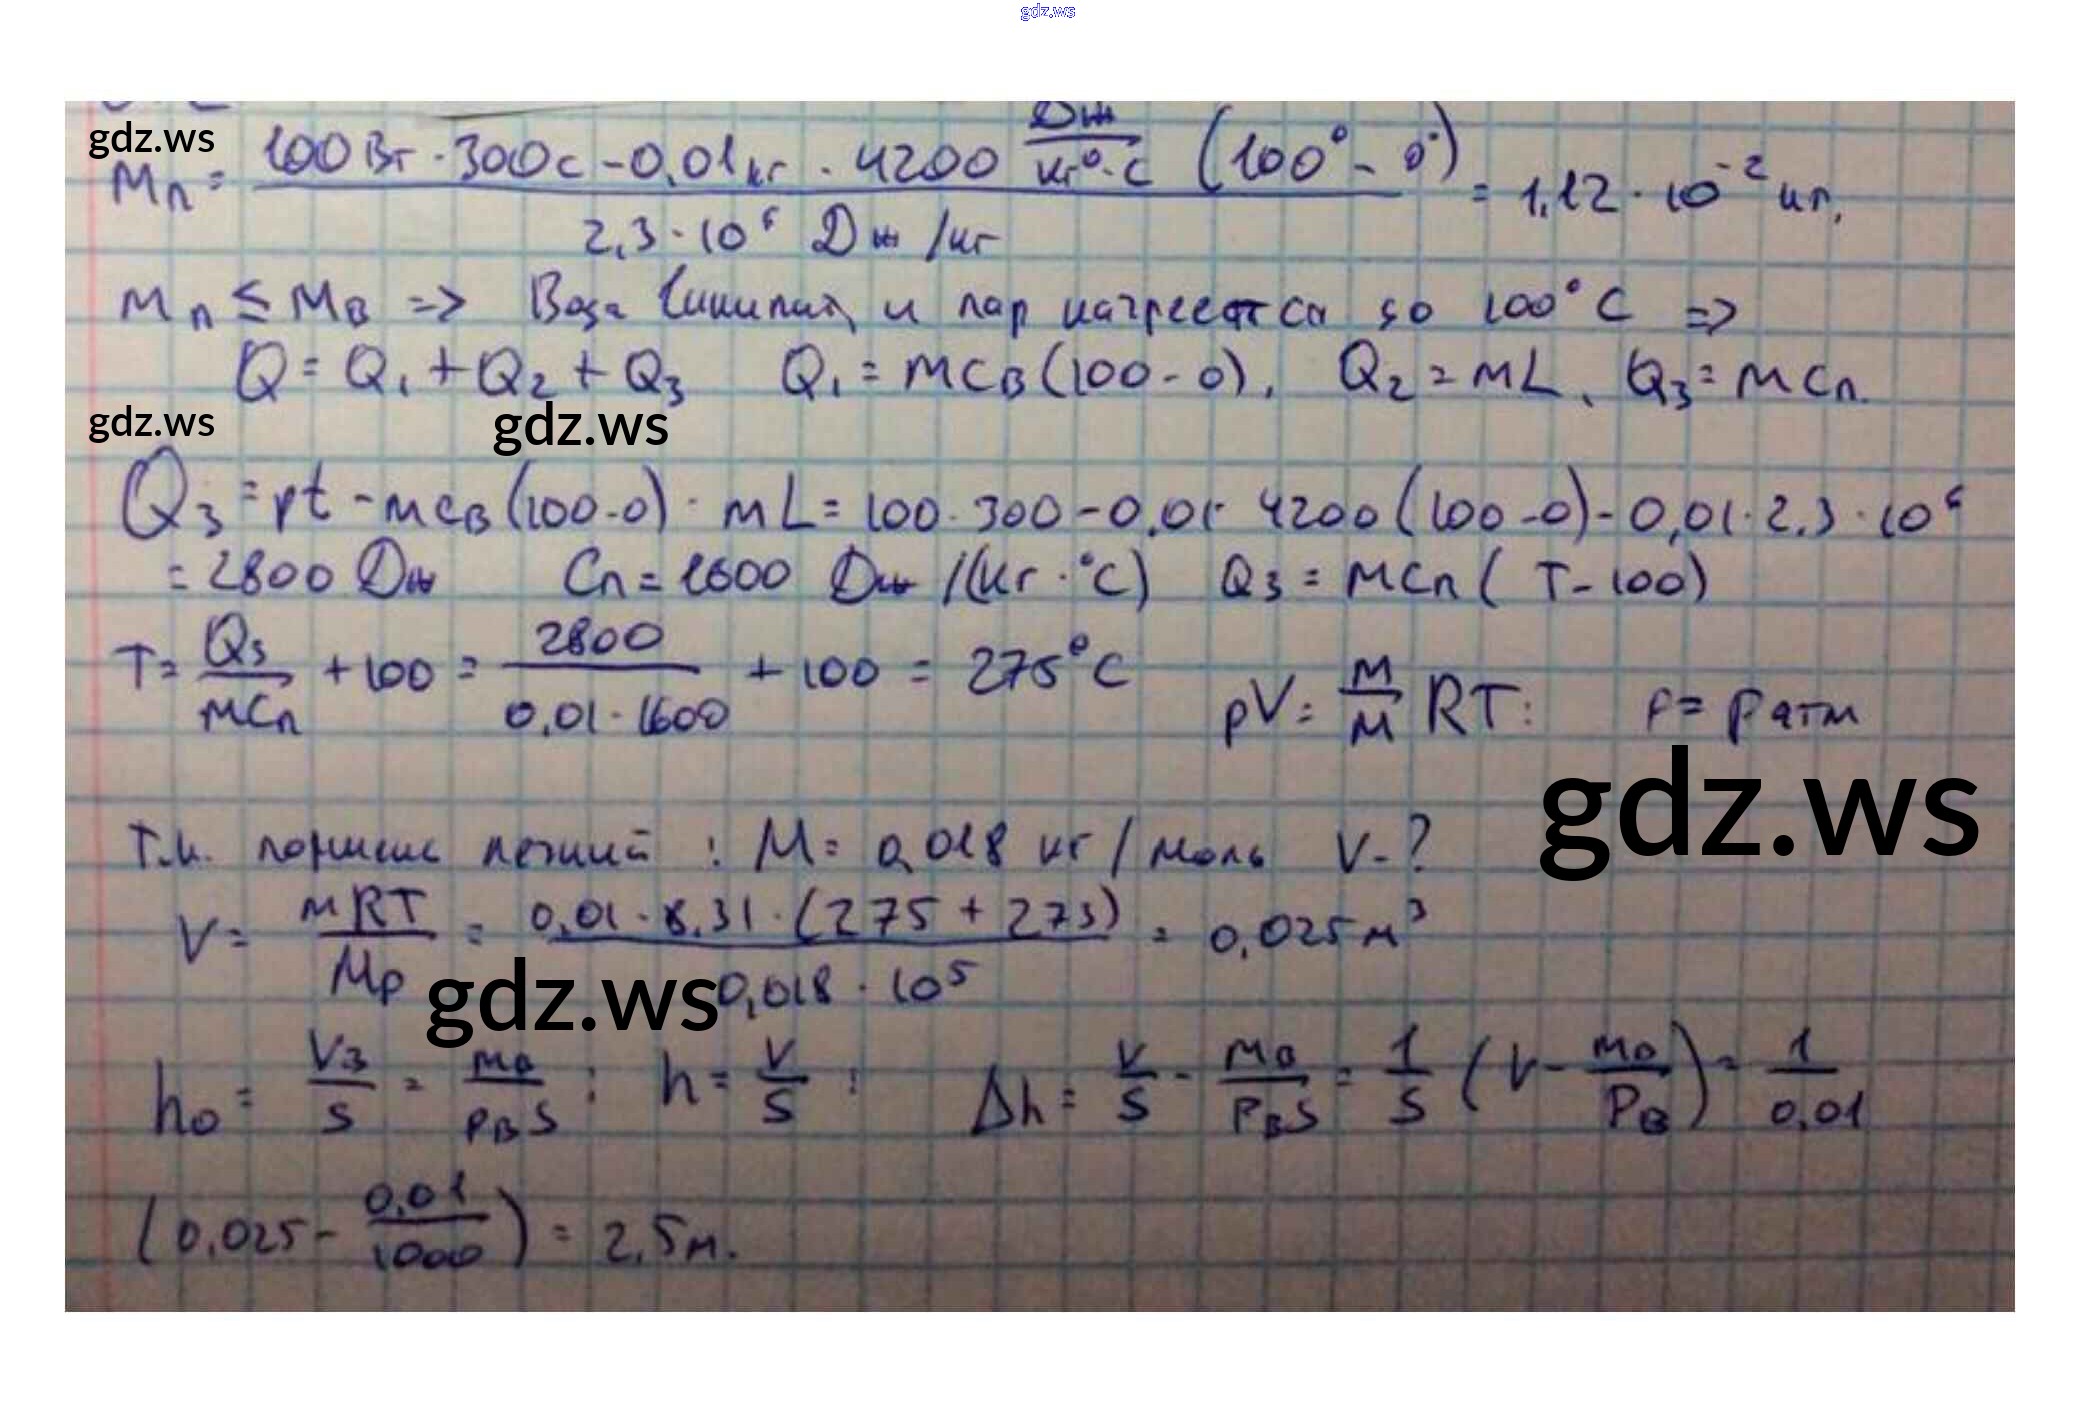 gdz.ws
gdz.ws
Mп = (100 Вт · 300 с - 0,01 кг · 4200 Дж/кг°·С (100° - 0°)) / (2,3 · 10⁶ Дж/кг) = 1,12 · 10⁻² кг,
Mп ≤ Mв => Вода и пар нагреется до 100°С =>
Q = Q₁ + Q₂ + Q₃ Q₁ = mCв(100 - 0), Q₂ = mL, Q₃ = mCп.
gdz.ws gdz.ws
Q₃ = pt - mcв(100-0) - mL = 100 · 300 - 0,01 · 4200(100-0) - 0,01 · 2,3 · 10⁶
= 2800 Дж Cп = 1600 Дж/(кг · °С) Q₃ = mCп(T - 100)
T = Q₃/mCп + 100 = 2800/(0,01 · 1600) + 100 = 275°С pV = m/M RT; p = pатм
gdz.ws
Т.к. поршень легкий: M = 0,018 кг/моль V - ?
V = mRT/Mp = 0,01 · 8,31 · (275 + 273) / 0,018 · 10⁵ = 0,025 м³
gdz.ws
h₀ = Vв/S = mв/ρвS; h = V/S; Δh = V/S - mв/ρвS = 1/S (V - mв/ρв) = 1/0,01
(0,025 - 0,01/1000) = 2,5 м.